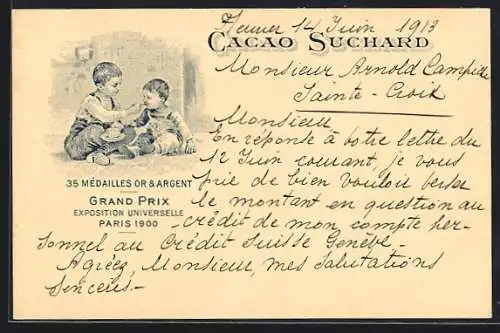 14 Juin 1913
CACAO SUCHARD
Monsieur Arnold Campiche
Sainte-Croix
Monsieur
En réponse à votre lettre du
12 Juin courant, je vous
prie de bien vouloir verser
le montant en question au
crédit de mon compte per-
sonnel au Crédit Suisse Genève.
Agréez, Monsieur, mes salutations
sincères.-
35 MÉDAILLES OR & ARGENT
GRAND PRIX
EXPOSITION UNIVERSELLE
PARIS 1900